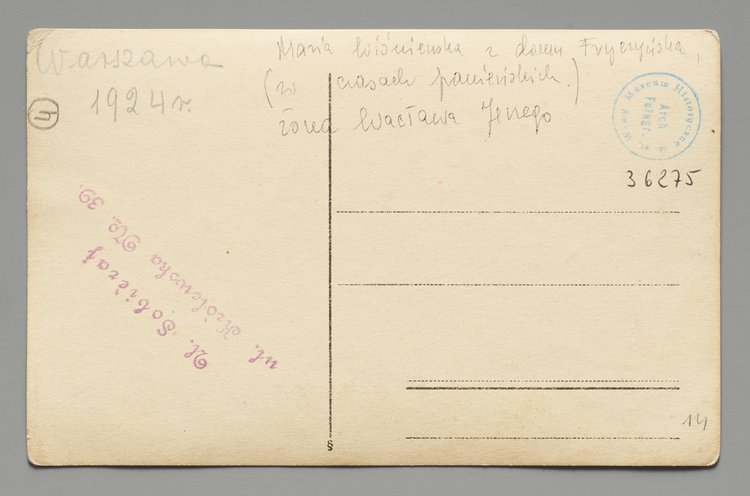 Warszawa
1924 r.
4
Maria Wiśniewska z domu Fryczyńska,
(w czasach panieńskich.)
żona Wacława Jerzego
Muzeum Historyczne
Arch.
Fotogr.
36275
Sobieraj
ul. Królewska № 39.
§
14